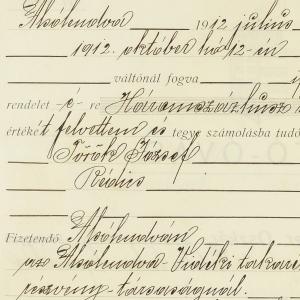 Alsólendva 1912 július
1912. október hó 12-én
váltónál fogva
rendelet é- re Háromszázhusz
értékét felvettem és tegye számolásba tudó
Török József
Rédics
Fizetendő Alsólendván
az Alsólendva-Vidéki takaré
részvény-társaságnál.